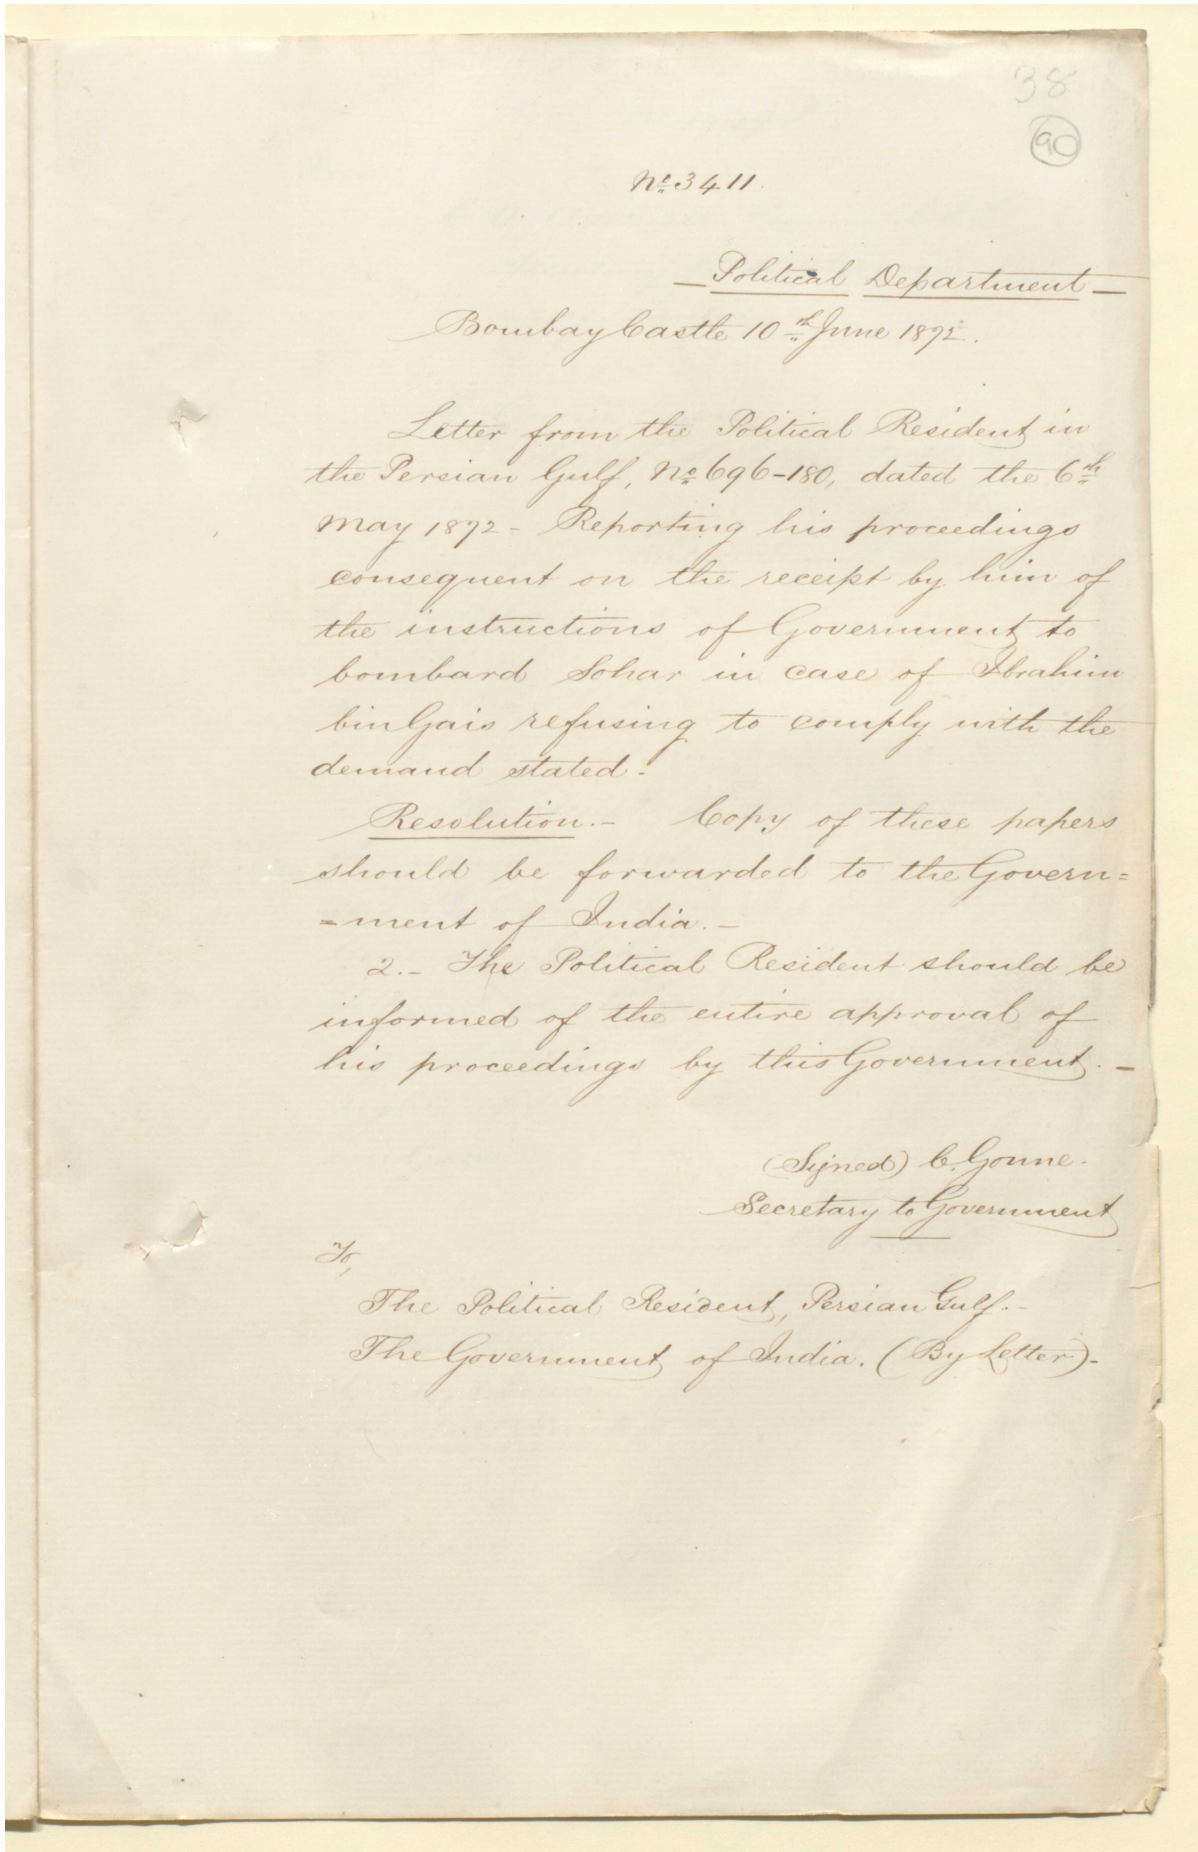 38
90
No. 3411.
Political Department
Bombay Castle 10th June 1872.
Letter from the Political Resident in
the Persian Gulf, No. 696-180, dated the 6th
May 1872 - Reporting his proceedings
consequent on the receipt by him of
the instructions of Government to
bombard Sohar in case of Ibrahim
bin Gais refusing to comply with the
demand stated.
Resolution. - Copy of these papers
should be forwarded to the Govern=
=ment of India. -
2. - The Political Resident should be
informed of the entire approval of
his proceedings by this Government. -
(Signed) C. Gonne.
Secretary to Government
To,
The Political Resident, Persian Gulf. -
The Government of India. (By Letter). -